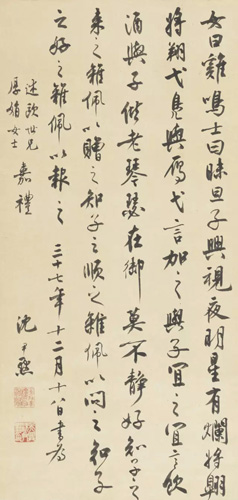 女曰雞鳴士曰昧旦子興視夜明星有爛將翱
將翔弋鳧與雁弋言加之與子宜之宜言飲
酒與子偕老琴瑟在御莫不靜好知子之
來之雜佩以贈之知子之順之雜佩以問之知子
之好之雜佩以報之 三十七年十二月十八日書為
述歐世兄
厚媋女士
嘉禮
沈尹默